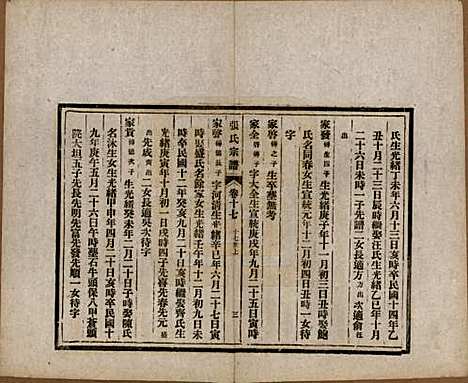 氏生光緒丁未年六月十三日亥時卒民國十四年乙
丑十月二十三日辰時繼娶汪氏生光緒乙巳年十月
二十六日未時一子先譜二女長適方方出次適俞汪
出
家發 生光緒庚子年十一月初三日丑時娶鮑
氏名同春女生宣統辛亥年十月初四日丑時一女待
字
家啓 之子 生卒塟無考
家全 子 字大全生宣統庚戌年九月二十五日寅時
張氏宗譜 卷十七 三
家啓 子 字河清生光緒辛巳年六月二十七日寅
時娶盛氏名餘家女生光緒壬午年十二月初九日未
時卒民國十二年癸亥九月二十日亥時繼娶齊氏生
光緒庚寅年十月初一日戌時四子先喜先春先元
出先成齊出二女長適吳次待字
家貴 次子 生光緒癸未年二月二十日子時娶陳氏
名沐生女生光緒甲申年四月二十日亥時卒民國十
九年庚午五月二十六日午時塟石牛頭保八甲蒼頭
院大坦五子先富先發先順一女待字